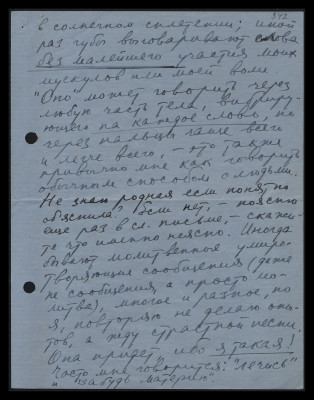 342
в солнечном сплетении; иной
раз губы выговаривают слова
без малейшего участия моих
мускулов или моей воли.
"Оно" может говорить через
любую часть тела, вибриру-
ющего на каждое слово, но
через пальцы чаще всего
и легче всего, – это также
привычно мне как говорить
обычным способом с людьми.
Не знаю родная если понятно
объяснила. Если нет, – поясню
еще раз в сл. письме, – скажи-
те что именно неясно. Иногда
бывают молитвенные умиро-
творяющие сообщения (даже
не сообщения, а просто мо-
литва), многое и разное, но
я, повторяю не делаю опы-
тов, а жду страстной песни.
Она придет, ибо я такая!
Часто мне говорится: "Лечись"
и "забудь материю".